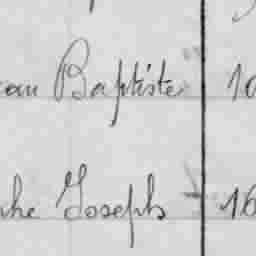 ean Baptiste 10
Joseph 16